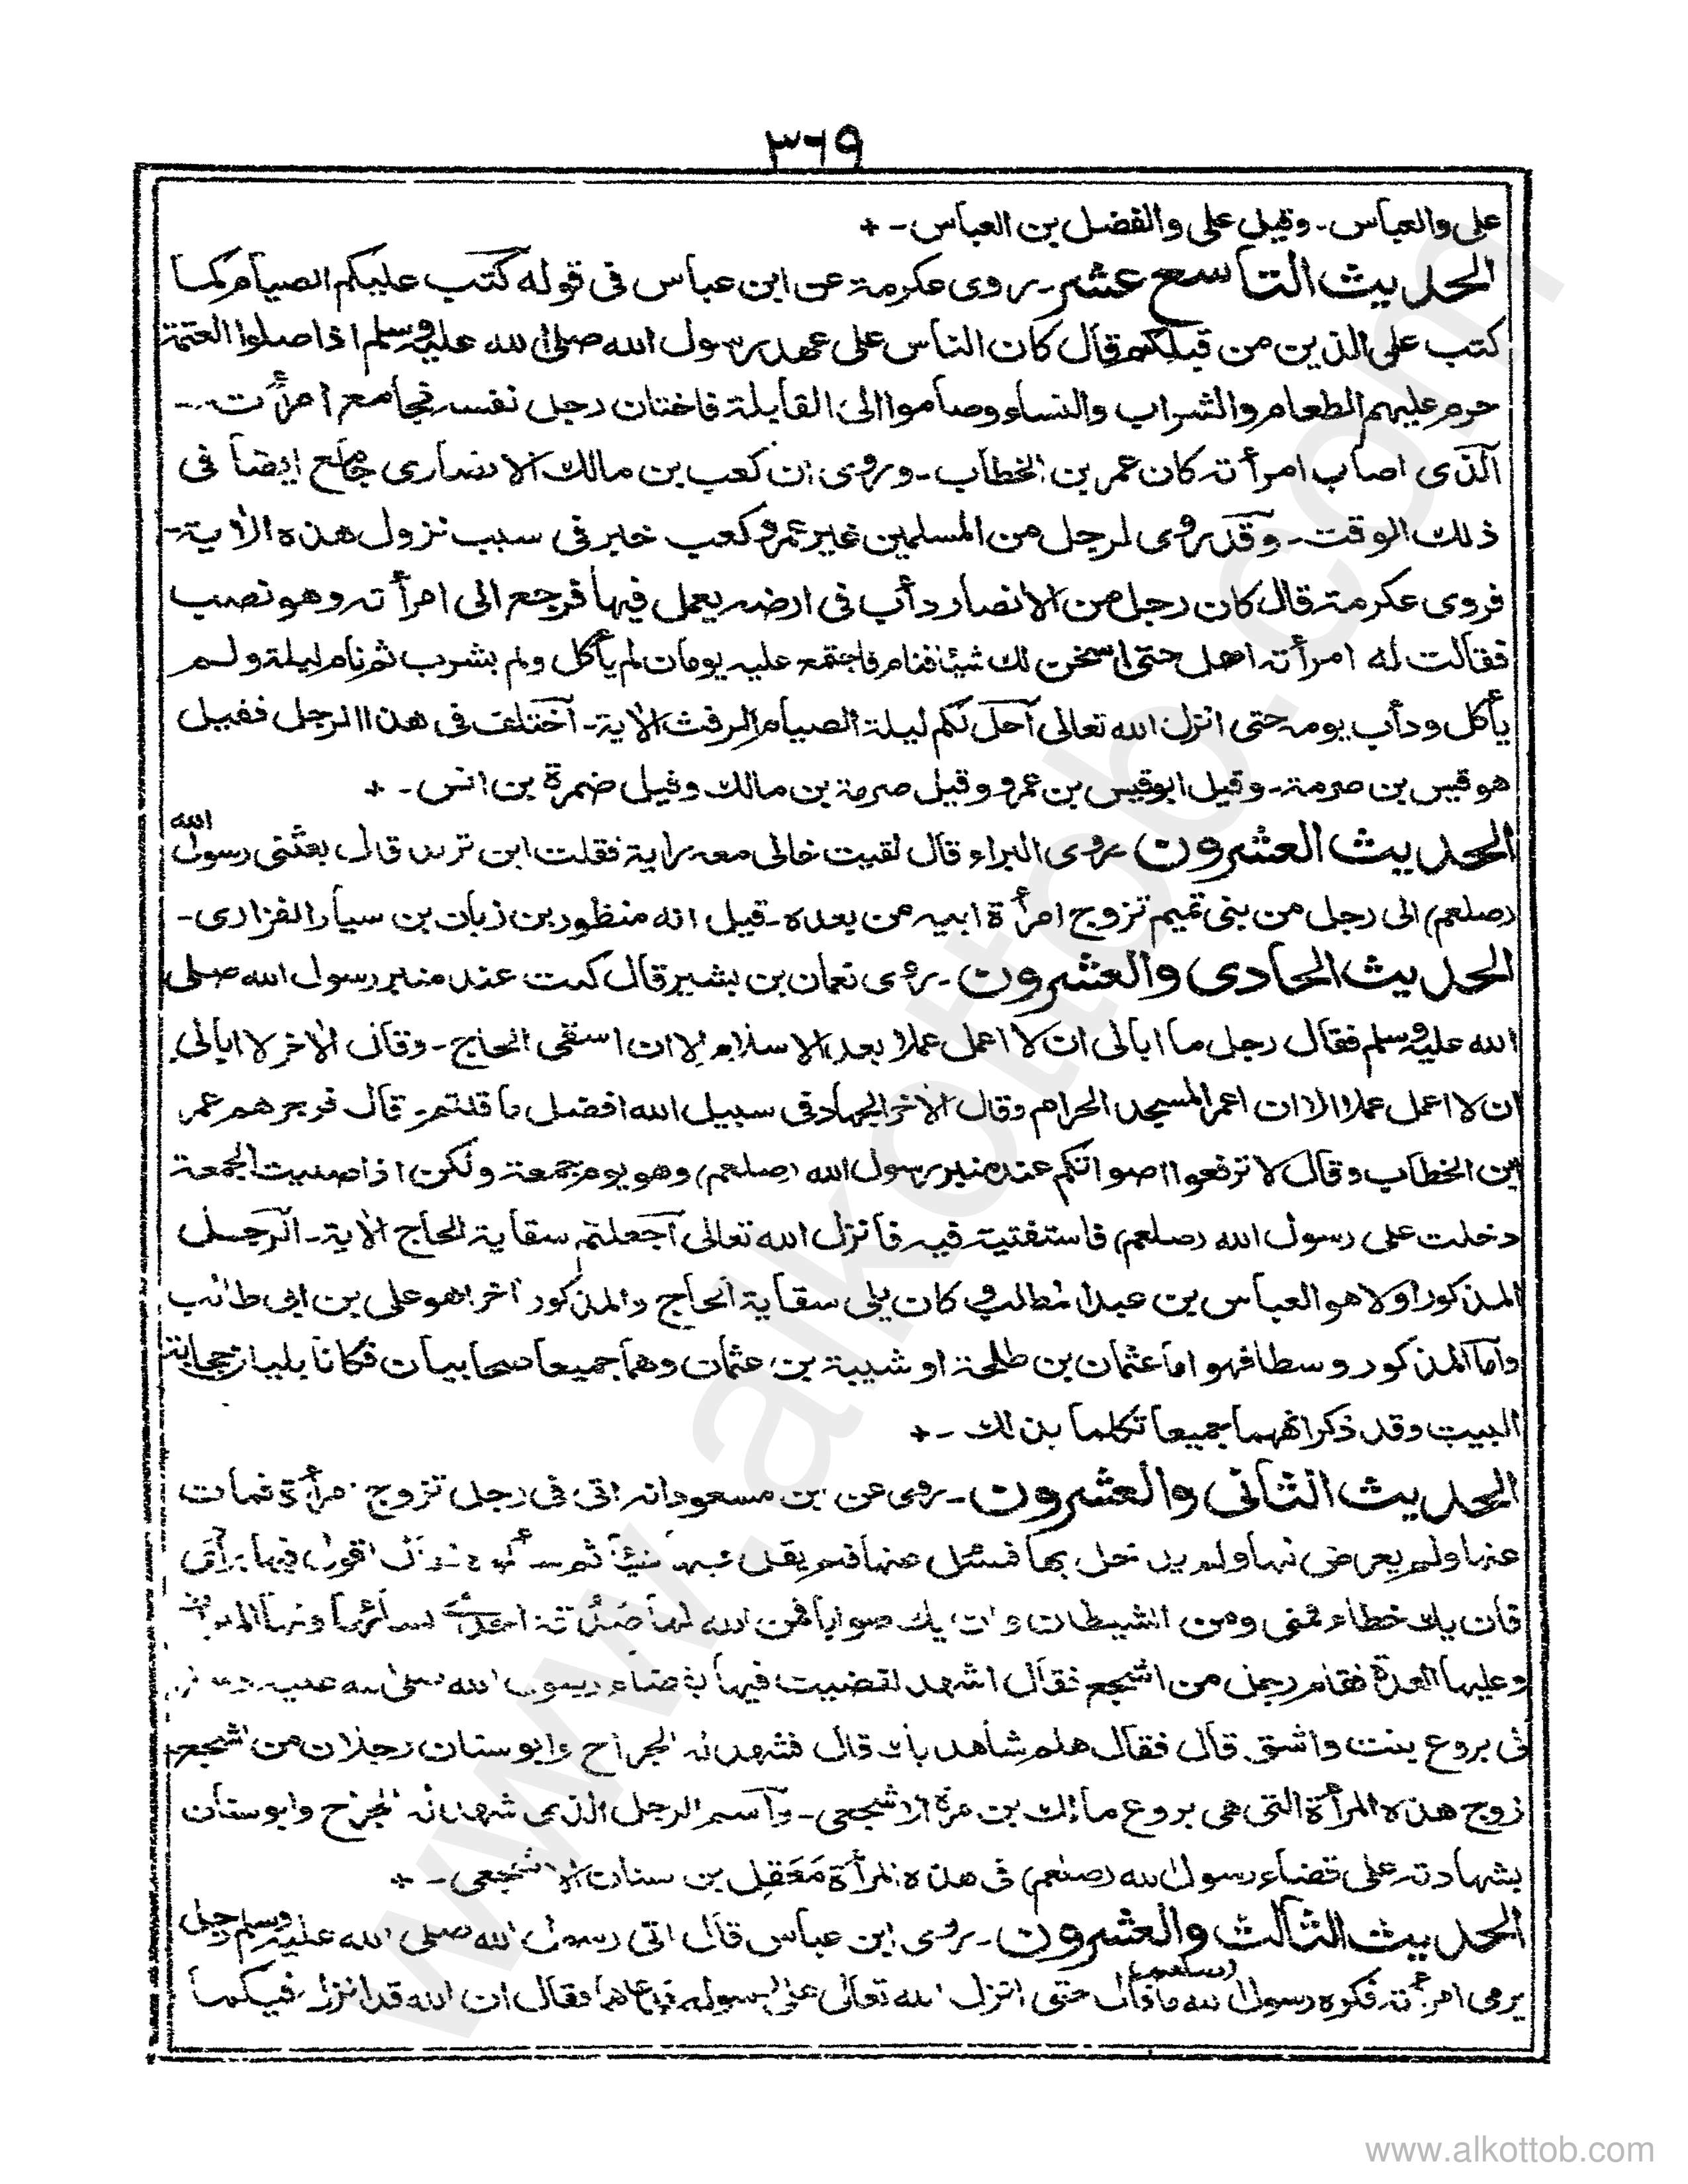 ٣٦٩
علی والعباس۔ وقیل علی والفضل بن العباس۔ +
الحدیث التاسع عشر۔ روی عکرمة عن ابن عباس فی قوله کتب علیکم الصیام کما
کتب علی الذین من قبلکم قال کان الناس علی عهد رسول الله صلی الله علیه وسلم اذا صلوا العتمة
حرم علیهم الطعام والشراب والنساء وصاموا الی القابلة فاختان رجل نفسه فجامع امرأته۔
الذی اصاب امرأته کان عمر بن الخطاب۔ وروی ان کعب بن مالك الانصاری جامع ایضا فی
ذلك الوقت۔ وقد روی لرجل من المسلمین غیر عمر وکعب خبر فی سبب نزول هذه الایة۔
فروی عکرمة قال کان رجل من الانصار دأب فی ارضه یعمل فیها فرجع الی امرأته وهو نصب
فقالت له امرأته امهل حتی اسخن لك شیئا فنام فاجتمع علیه یومان لم یأکل ولم یشرب ثم نام لیلة ولم
یأکل ودأب یومه حتی انزل الله تعالی احل لکم لیلة الصیام الرفث الایة۔ اختلف فی هذا الرجل فقیل
هو قیس بن صرمة۔ وقیل ابو قیس بن عمرو وقیل صرمة بن مالك وقیل ضمرة بن انس۔ +
الحدیث العشرون روی البراء قال لقیت خالی معه رایة فقلت این ترید قال بعثنی رسول الله
(صلعم) الی رجل من بنی تمیم تزوج امرأة ابیه من بعده۔ قیل انه منظور بن زبان بن سیار الفزاری۔
الحدیث الحادی والعشرون۔ روی نعمان بن بشیر قال کنت عند منبر رسول الله صلی
الله علیه وسلم فقال رجل ما ابالی ان لا اعمل عملا بعد الاسلام الا ان اسقی الحاج۔ وقال الاخر لا ابالی
ان لا اعمل عملا الا ان اعمر المسجد الحرام وقال الاخر الجهاد فی سبیل الله افضل ما قلتم۔ قال فزجرهم عمر
بن الخطاب وقال لا ترفعوا اصواتکم عند منبر رسول الله (صلعم) وهو یوم جمعة ولکن اذا صلیت الجمعة
دخلت علی رسول الله (صلعم) فاستفتیته فیه فانزل الله تعالی اجعلتم سقایة الحاج الایة۔ الرجل
المذکور اولا هو العباس بن عبد المطلب وکان یلی سقایة الحاج والمذکور اخرا هو علی بن ابی طالب
واما المذکور وسطا فهو اما عثمان بن طلحة او شیبة بن عثمان وهما جمیعا صحابیان فکانا یلیان حجابة
البیت وقد ذکر انهما جمیعا تکلما بذلك۔ +
الحدیث الثانی والعشرون۔ روی عن بن مسعود انه اتی فی رجل تزوج امرأة فمات
عنها ولم یعرض لها ولم یدخل بها فسئل عنها فلم یقل فیها شیئا ثم اقول فیها برأی
فان یك خطاء فمنی ومن الشیطان وان یك صوابا فمن الله لها صدقة احدی نسائها ولها المیراث
وعلیها العدة فقام رجل من اشجع فقال اشهد لقضیت فیها بقضاء رسول الله صلی الله علیه وسلم
فی بروع بنت واشق قال فقال هلم شاهدیك قال فشهد له الجراح وابو سنان رجلان من اشجع
زوج هذه المرأة التی هی بروع مالك بن مرة الاشجعی۔ واسم الرجل الذی شهد له الجراح وابو سنان
بشهادته علی قضاء رسول الله (صلعم) فی هذه المرأة مَعْقِل بن سنان الاشجعی۔ +
الحدیث الثالث والعشرون۔ روی ابن عباس قال اتی رسول الله صلی الله علیه وسلم رجل
یرمی امرأته فکره رسول الله (صلعم) ما قال حتی انزل الله تعالی علی رسوله فدعاهما فقال ان الله قد انزل فیکما
www.alkottob.com
www.alkottob.com